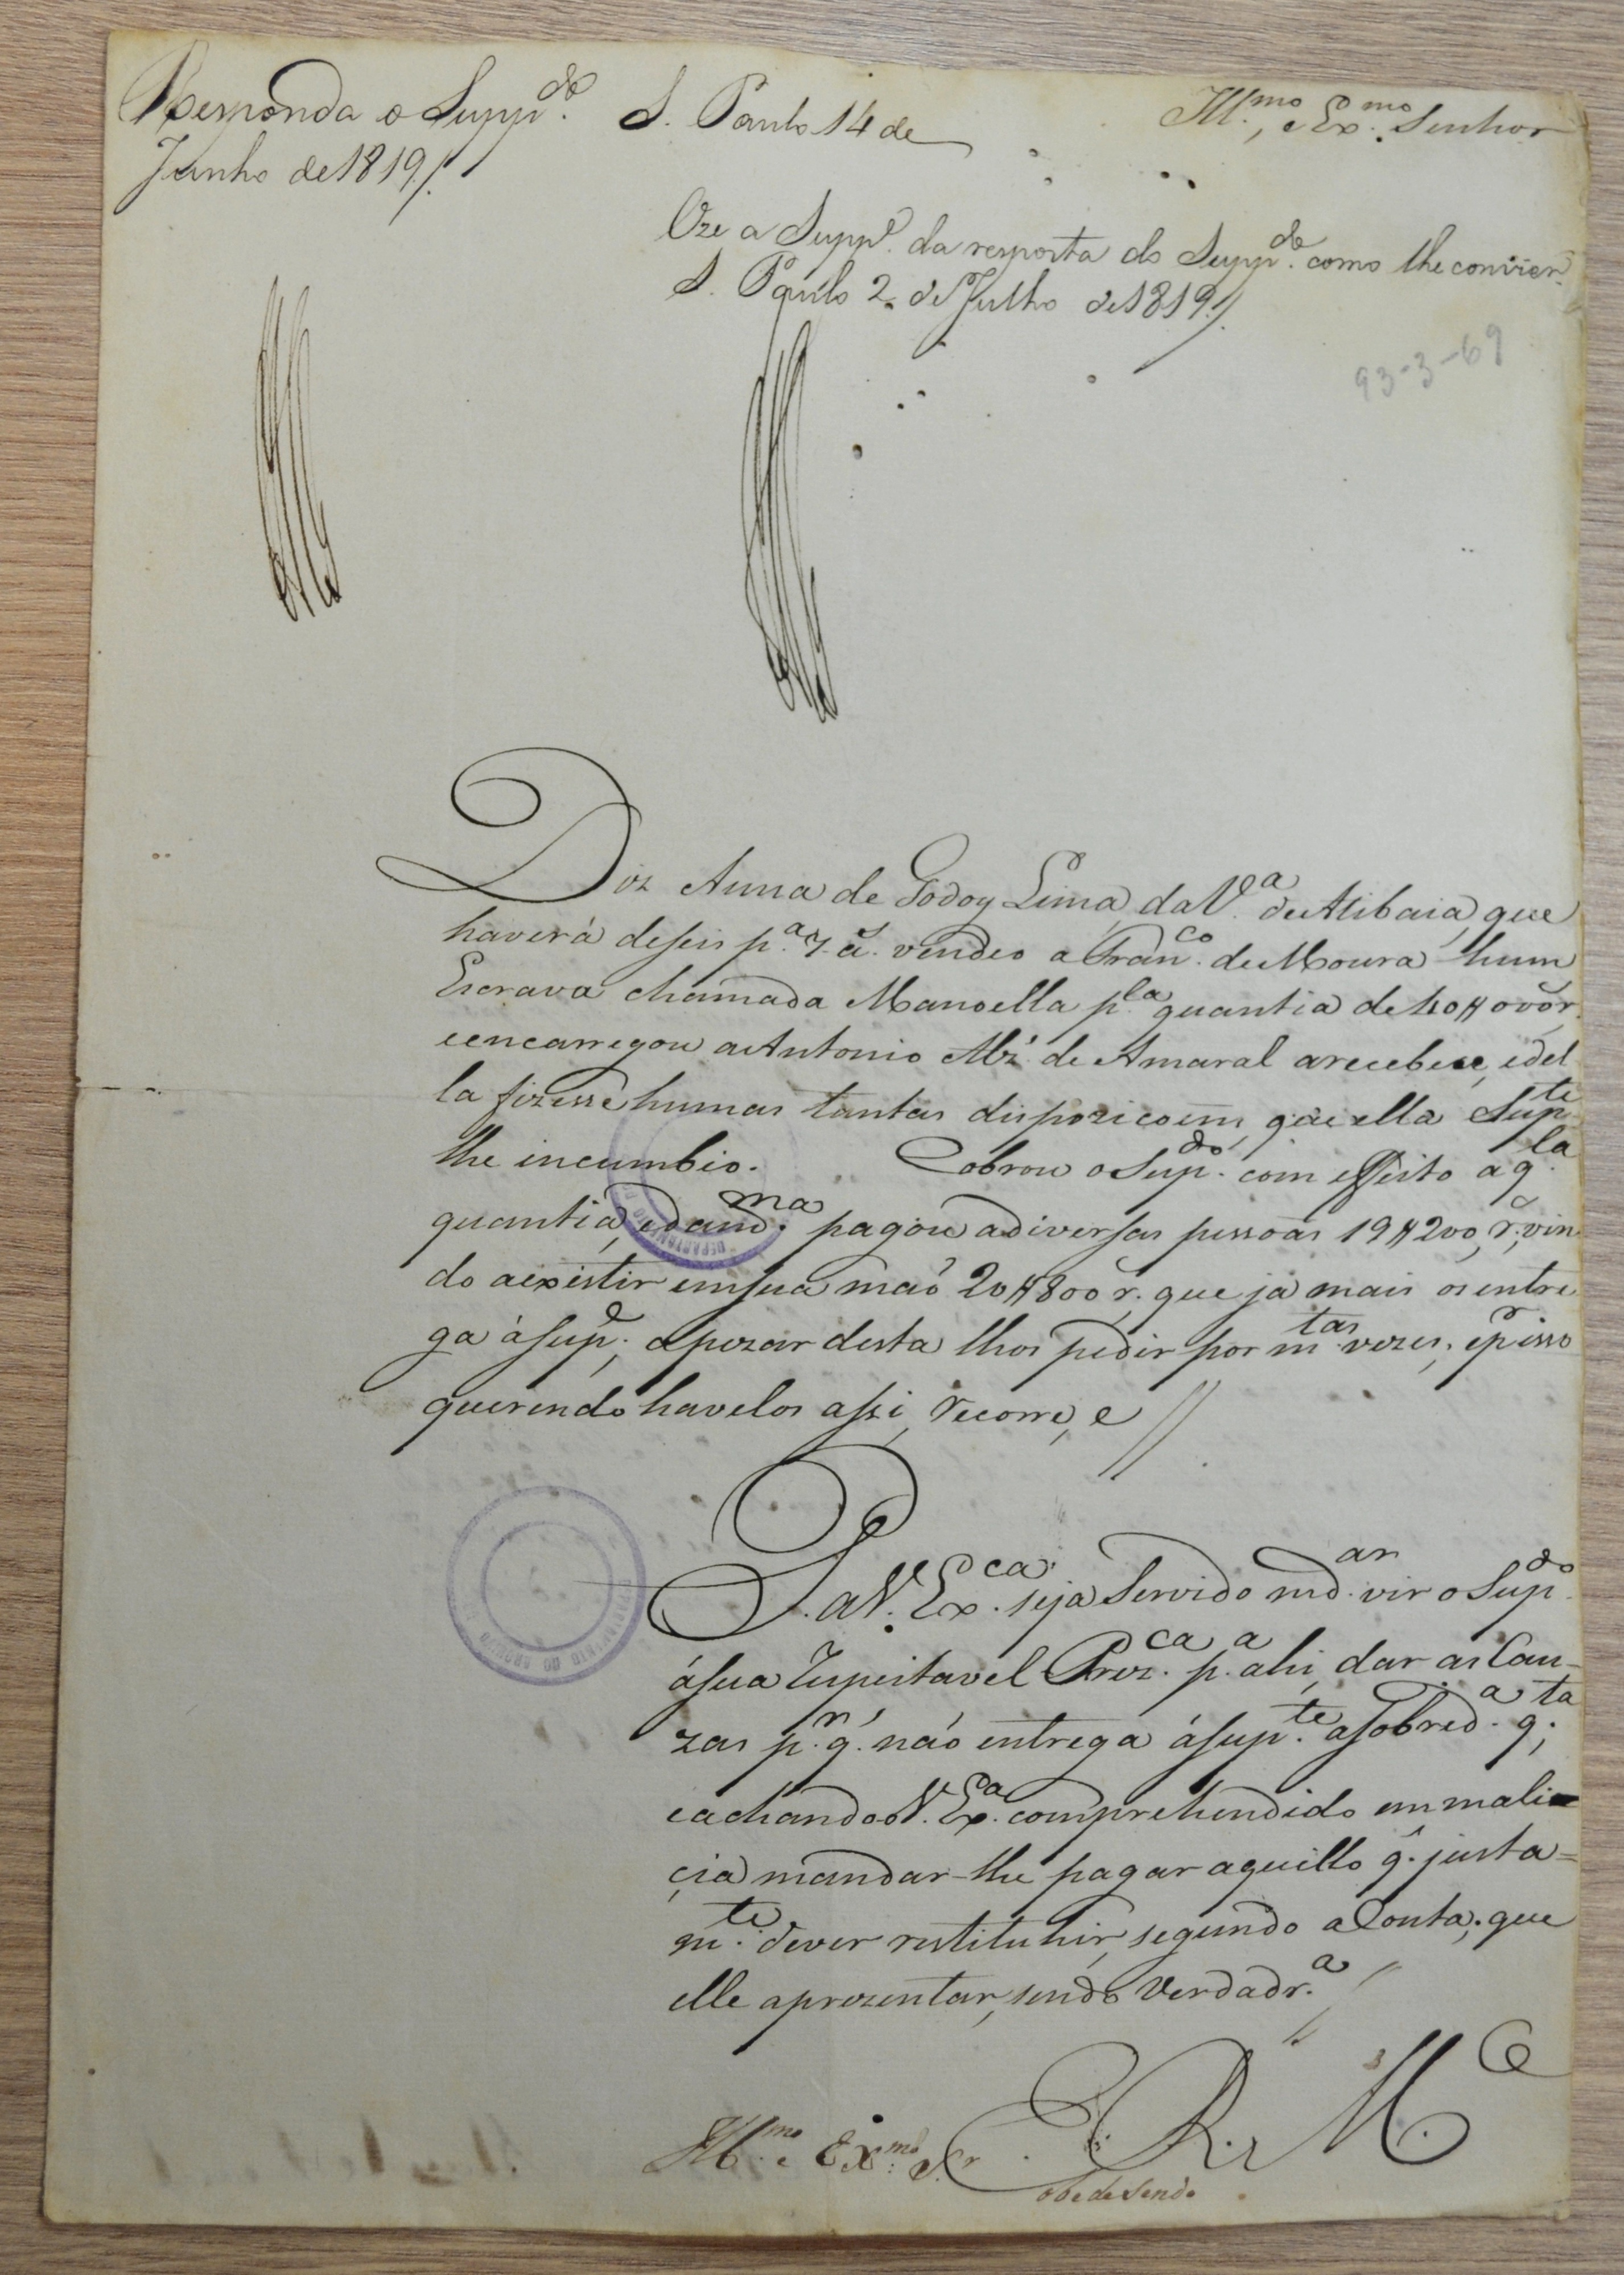 Responda o Supp.do S. Paulo 14 de
Junho de 1819./.
Ill.mo, e Ex.mo Senhor
Uze a Supp.e da resposta do Supp.do como lhe convier.
S. Paulo 2 de Julho de 1819./.
93-3-69
Diz Anna de Godoy Lima, da V.a de Atibaia, que
haverá de seis p.a 7 ã. vendeo a Fran.co de Moura hum
Escrava chamada Manoella p.la quantia de 40#000 r.
e encarregou a Antonio Alz' de Amaral a recebece, e del
la fizesse humas tantas dispozicoens, que ella Sup.te
lhe incumbio. Cobrou o Sup.do com effeito aq.la
quantia, e da m.ma pagou a diversas pessoas 19#200 r., vin
do a existir em sua maõ 20#800 r. que já mais os entre
ga á Sup.e, apezar desta lhos pedir por m.tas vezes; e p.r isso
querendo havelos assi, recorre, e //
P. a V. Ex.ca seja Servido md.ar vir o Sup.do
á sua Respeitavel Prez.ca p.a ahi, dar as Cau-
zas p.r q' naó entrega á Sup.te a Sobred.a q.ta;
e achando-o V. Ex.a comprehendido em mali-
cia mandar-lhe pagar aquillo q' justa=
m.te dever restituhir, segundo a Conta, que
elle aprezentar, sendo Verdadr.a //
E. R. M.ce
Ill.mo e Ex.mo S.r
obedesendo